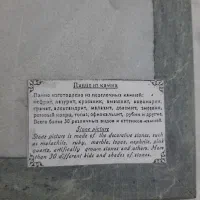 Панно из камня
Панно изготовлено из поделочных камней:
нефрит, лазурит, красавик, амазонит, аквамарин,
гранат, александрит, малахит, азонит, змеевик,
розовый кварц, топаз, офиокальцит, рубин и другие.
Всего более 30 различных видов и оттенков камней
Stone picture
Does picture is made of the decorative stones, such
as malachite, ruby, marble, topaz, nephrite, pink
quartz, artificially grown stones and others. More
than 30 different kids and shades of stones.